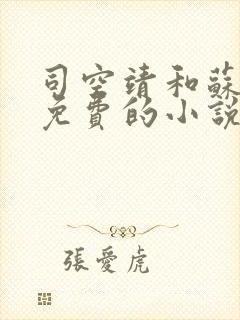 司空靖和蘇
免費的小說
張愛虎